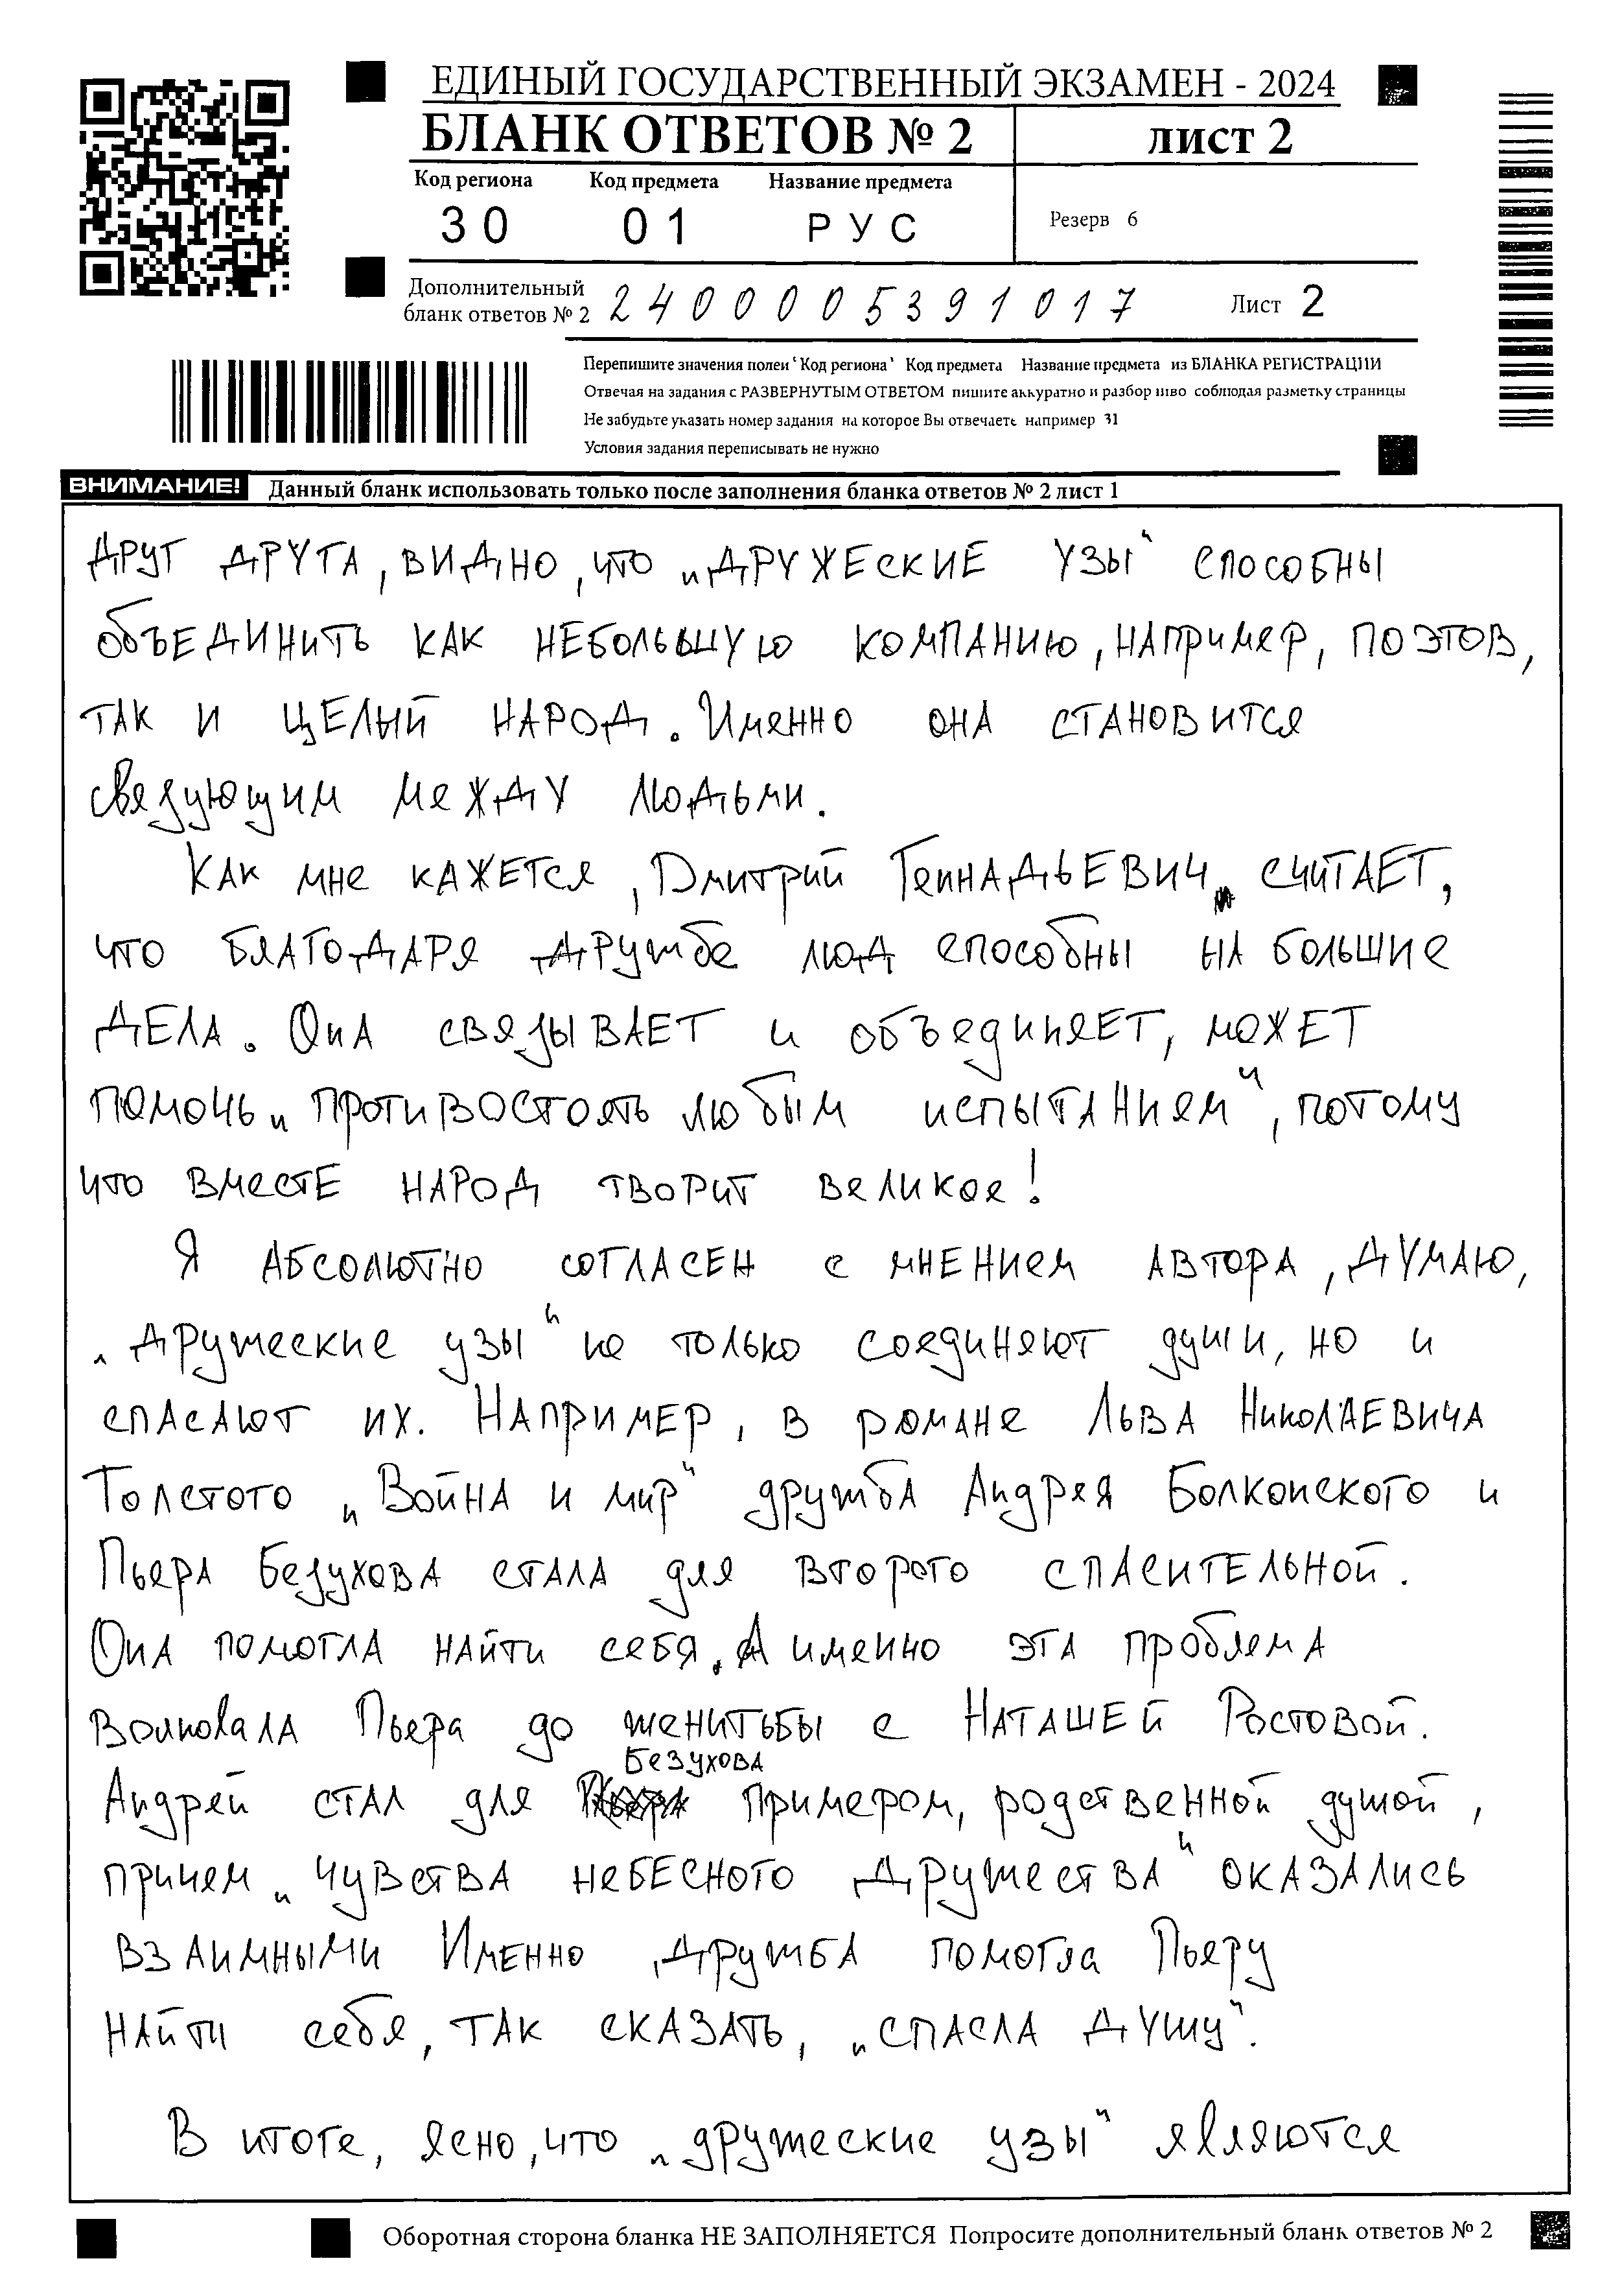 ЕДИНЫЙ ГОСУДАРСТВЕННЫЙ ЭКЗАМЕН - 2024
БЛАНК ОТВЕТОВ № 2
лист 2
Код региона Код предмета Название предмета
30 01 РУС
Резерв 6
Дополнительный
бланк ответов № 2
2400005391017
Лист 2
Перепишите значения полей "Код региона" Код предмета Название предмета из БЛАНКА РЕГИСТРАЦИИ
Отвечая на задания с РАЗВЕРНУТЫМ ОТВЕТОМ пишите аккуратно и разборчиво соблюдая разметку страницы
Не забудьте указать номер задания на которое Вы отвечаете например 31
Условия задания переписывать не нужно
ВНИМАНИЕ! Данный бланк использовать только после заполнения бланка ответов № 2 лист 1
друг друга, видно, что „дружеские узы“ способны
объединить как небольшую компанию, например, поэтов,
так и целый народ. Именно она становится
связующим между людьми.
Как мне кажется, Дмитрий Геннадьевич считает,
что благодаря дружбе люд способны на большие
дела. Она связывает и объединяет, может
помочь „противостоять любым испытаниям“, потому
что вместе народ творит великое!
Я абсолютно согласен с мнением автора, думаю,
„дружеские узы“ не только соединяют души, но и
спасают их. Например, в романе Льва Николаевича
Толстого „Война и мир“ дружба Андрея Болконского и
Пьера Безухова стала для второго спасительной.
Она помогла найти себя. А именно эта проблема
волновала Пьера до женитьбы с Наташей Ростовой.
Андрей стал для Безухова примером, родственной душой,
причем „чувства небесного дружества“ оказались
взаимными Именно дружба помогла Пьеру
найти себя, так сказать, „спасла душу“.
В итоге, ясно, что „дружеские узы“ являются
Оборотная сторона бланка НЕ ЗАПОЛНЯЕТСЯ Попросите дополнительный бланк ответов № 2